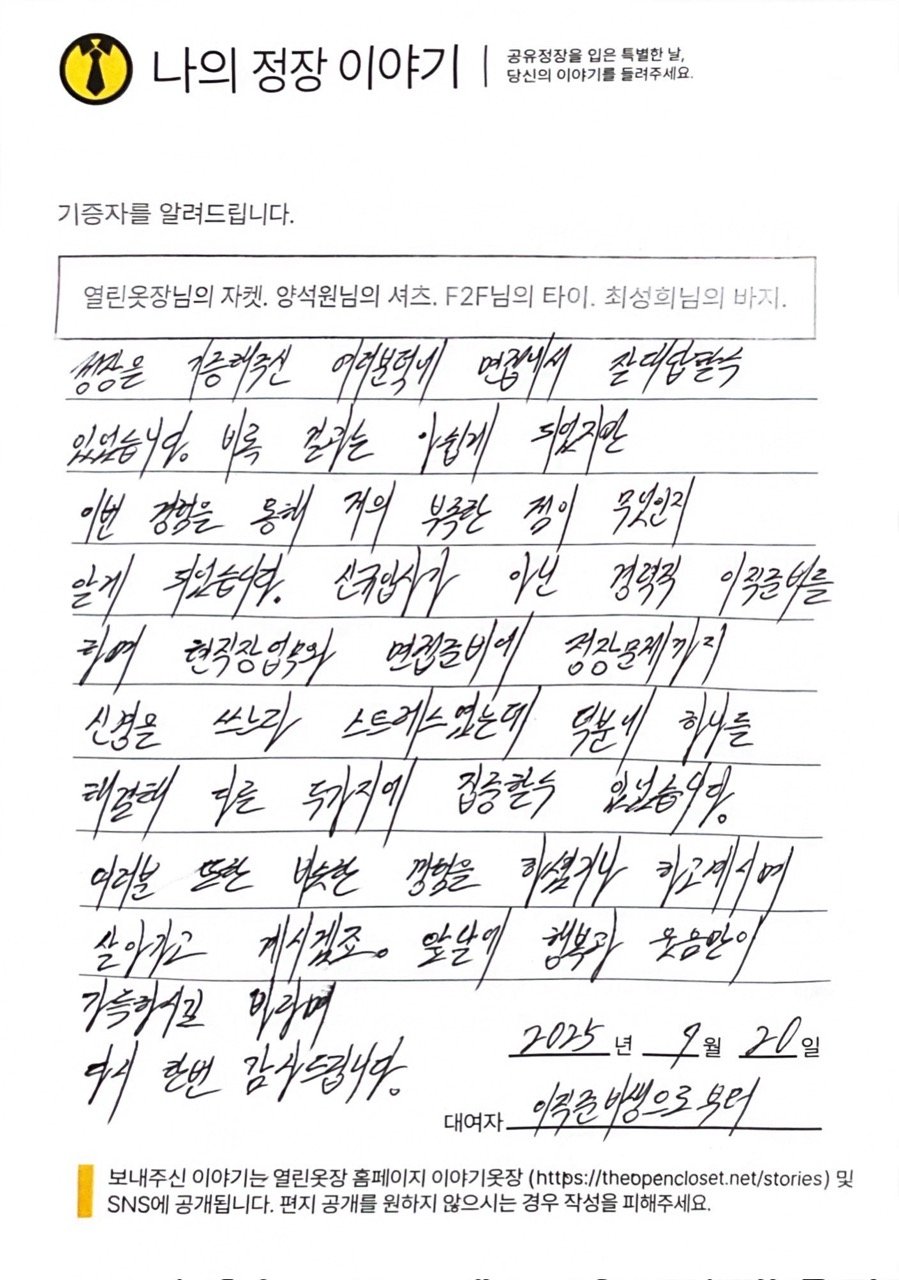 나의 정장 이야기
공유정장을 입은 특별한 날,
당신의 이야기를 들려주세요.
기증자를 알려드립니다.
열린옷장님의 자켓. 양석원님의 셔츠. F2F님의 타이. 최성희님의 바지.
정장을 기증해주신 여러분덕에 면접에서 잘 대답할수
있었습니다. 비록 결과는 아쉽게 되었지만
이번 경험을 통해 저의 부족한 점이 무엇인지
알게 되었습니다. 신규입사가 아닌 경력직 이직준비를
하며 현직장업무와 면접준비에 정장문제까지
신경을 쓰느라 스트레스였는데 덕분에 하나를
해결해 다른 두가지에 집중할수 있었습니다.
여러분 또한 비슷한 경험을 하셨거나 하고계시며
살아가고 계시겠죠. 앞날에 행복과 웃음만이
가득하시길 바라며
다시 한번 감사드립니다.
2025 년 9 월 20 일
대여자 이직준비생으로부터
보내주신 이야기는 열린옷장 홈페이지 이야기옷장 (https://theopencloset.net/stories) 및
SNS에 공개됩니다. 편지 공개를 원하지 않으시는 경우 작성을 피해주세요.